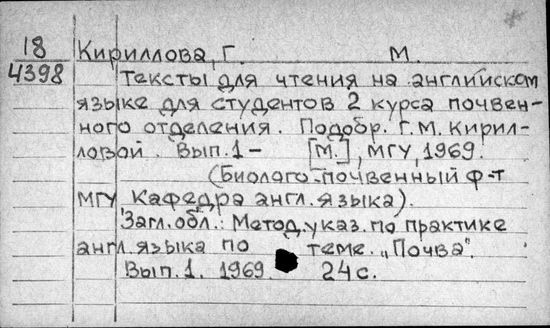 18
4398
Кириллова, Г. М.
Тексты для чтения на английском
языке для студентов 2 курса почвен-
ного отделения. Подобр. Г.М. Кирил-
ловой. Вып. 1 – [М.], МГУ, 1969.
(Биолого-почвенный ф-т
МГУ Кафедра англ. языка).
Загл. обл.: Метод. указ. по практике
англ. языка по теме „Почва".
Вып. 1. 1969. 24 с.